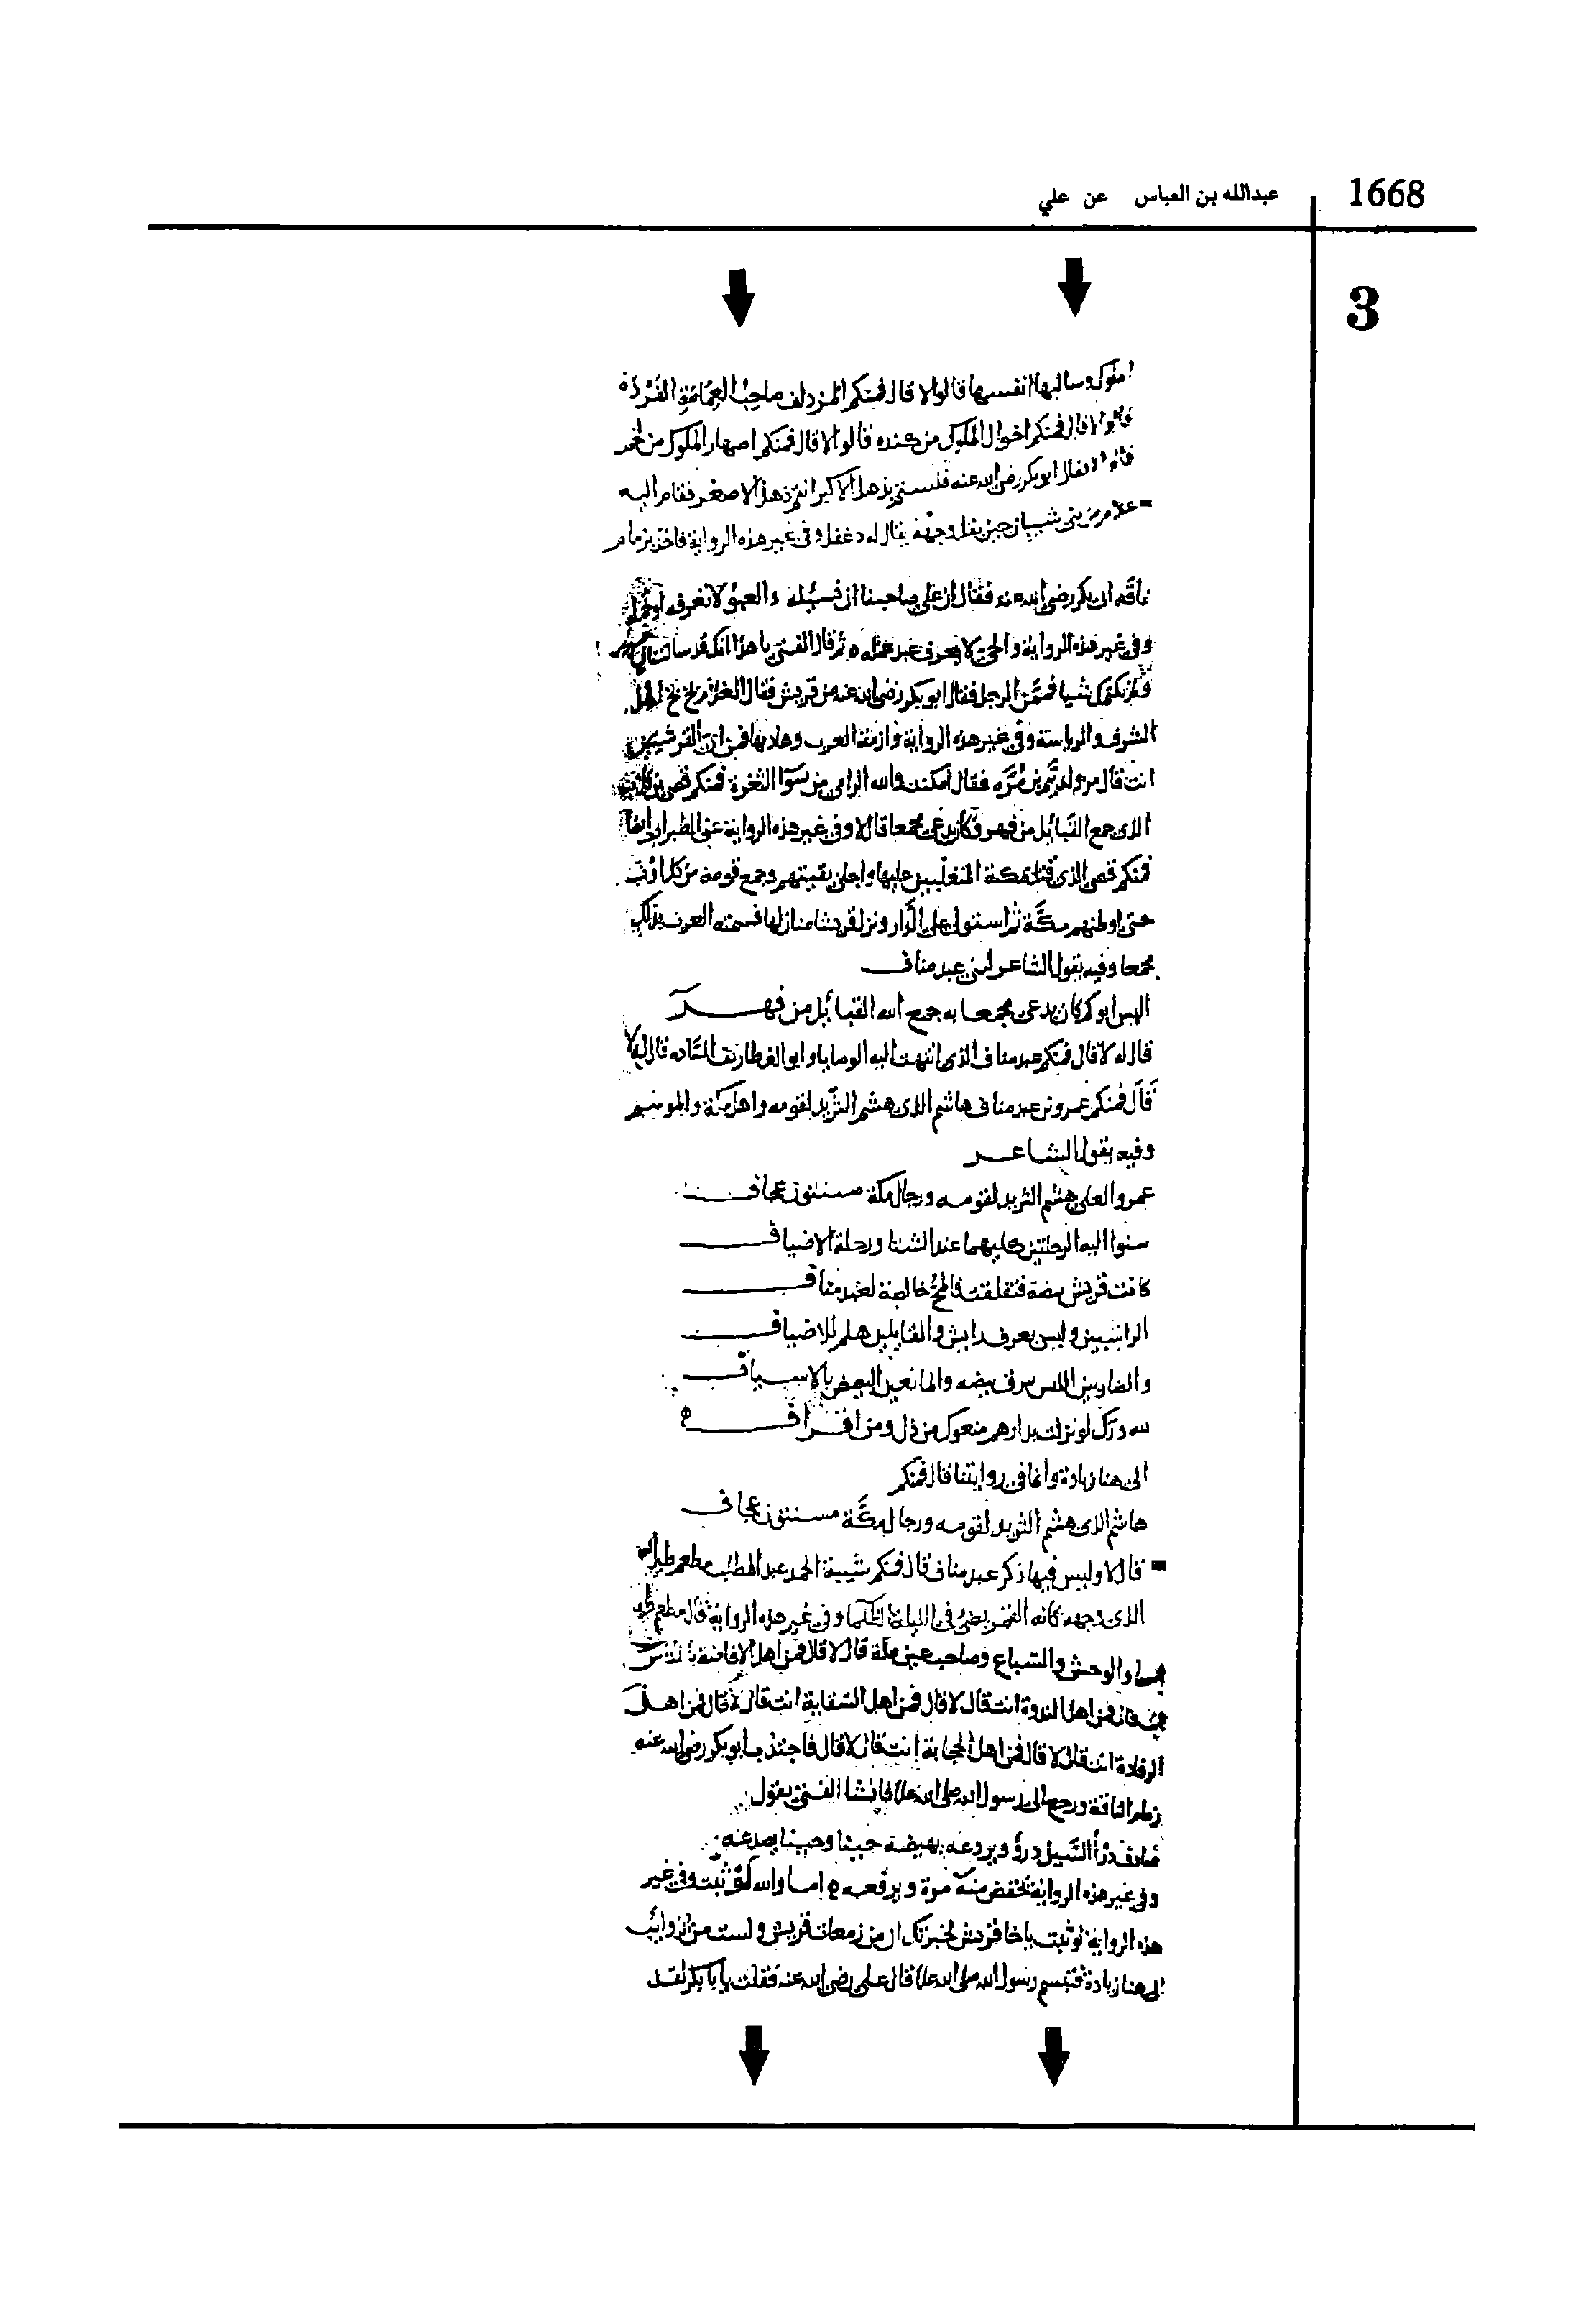 1668
عبدالله بن العباس عن علي
3
الملوك وسالبها انفسها قالوا لا قال فمنكم المزدلف صاحب العمامة الفردة
قالوا لا قال فمنكم اخوال الملوك من كنده قالوا لا قال فمنكم اصهار الملوك من لخم
قالوا لا فقال ابو بكر رضى الله عنه فلستم بذهل الاكبر انتم ذهل الاصغر فقام اليه
غلام من بنى شيبان حين بقل وجهه يقال له دغفل وفى غير هذه الرواية فاخذ بزمام
ناقه ابى بكر رضى الله عنه فقال ان على صاحبنا ان نسئله والعبؤ لا نعرفه او نحمله
وفى غير هذه الرواية والحق لا يعرف ثم قال الفتى يا هذا انك قد سالتنا
ولم نكتمك شيا فممن الرجل فقال ابو بكر رضى الله عنه من قريش فقال الغلام بخ بخ اهل
الشرف والرياسة وفى غير هذه الرواية وازمة العرب وهداتها فمن اى القرشيين
انت قال من ولد تيم بن مره فقال امكنت والله الرامى من سوا الثغرة فمنكم قصى بن كلاب
الذى جمع القبائل من فهر وكان يدعى مجمعا قال لا وفى غير هذه الرواية عن الطبرانى
فمنكم قصى الذى قتل بمكة المتغلبين عليها واجلى بقيتهم وجمع قومه من كل اوب
حتى اوطنهم مكة ثم استولى على الدار ونزل قريشا منازلها فسمته العرب بذلك
مجمعا وفيه يقول الشاعر لبنى عبد مناف
اليس ابوكم كان يدعى مجمعا به جمع الله القبائل من فهر
قال له لا قال فمنكم عبد مناف الذى انتهت اليه الوصايا وابو الغطاريف الساده قال لا
قال فمنكم عمرو بن عبد مناف هاشم الذى هشم الثريد لقومه واهل مكة والموسم
وفيه يقول الشاعر
عمرو العلى هشم الثريد لقومه ورجال مكة مسنتون عجاف
سنوا اليه الرحلتين كليهما عند الشتا ورحلة الاضياف
كانت قريش بيضة فتفلقت فالمح خالصة لعبد مناف
الرايشين وليس يعرف رايش والقايلين هلم للاضياف
والضاربين الكبش يبرق بيضه والمانعين البيض بالاسياف
لله درك لو نزلت بدارهم منعوك من ذل ومن اقراف ه
الى هنا زيادة وانما فى روايتنا قال فمنكم
هاشم الذى هشم الثريد لقومه ورجال مكة مسنتون عجاف
قال لا وليس فيها ذكر عبد مناف قال فمنكم شيبة الحمد عبد المطلب مطعم طير السما
الذى وجهه كانه القمر يضئ فى الليلة الظلما وفى غير هذه الرواية قال مطعم طير
السماء والوحش والسباع وصاحب عير مكة قال لا قال فمن اهل الافاضة بالناس
انت قال فمن اهل الندوة انت قال لا قال فمن اهل السقاية انت قال لا قال فمن اهل
الرفادة انت قال لا قال فمن اهل الحجابة انت قال لا قال فاجتذب ابو بكر رضى الله عنه
زمام الناقة ورجع الى رسول الله صلى الله عليه فانشا الفتى يقول
صادف درأ السيل درؤ يردعه يهيضه حينا وحينا يصدعه
وفى غير هذه الرواية تخفض منه مرة ويرفعه ه اما والله لو ثبت وفى غير
هذه الرواية لو ثبت ياخا قريش لخبرتك ان من زمعات قريش ولست من الذوائب
الى هنا زيادة فتبسم رسول الله صلى الله عليه قال على رضى الله عنه فقلت يا با بكر لقد